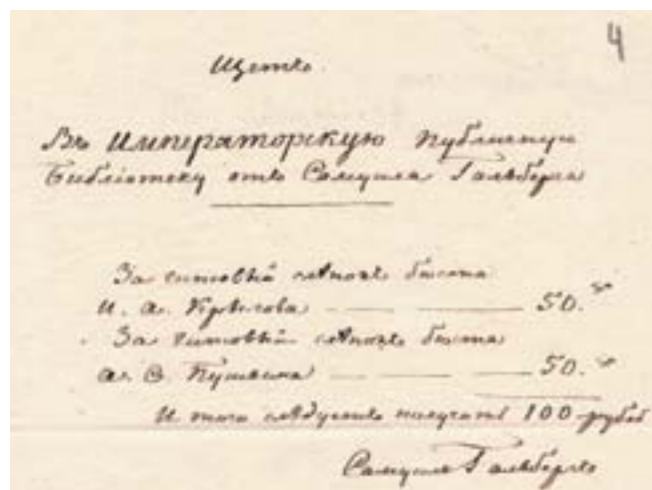 4
Щетъ.
Въ Императорскую Публичную
Библіотеку отъ Самуила Гальберга
За гипсовый слѣпокъ бюста
И. А. Крылова — — — 50. "
За гипсовый слѣпокъ бюста
А. С. Пушкина — — — 50. "
И того слѣдуетъ получить 100 рублей
Самуилъ Гальбергъ